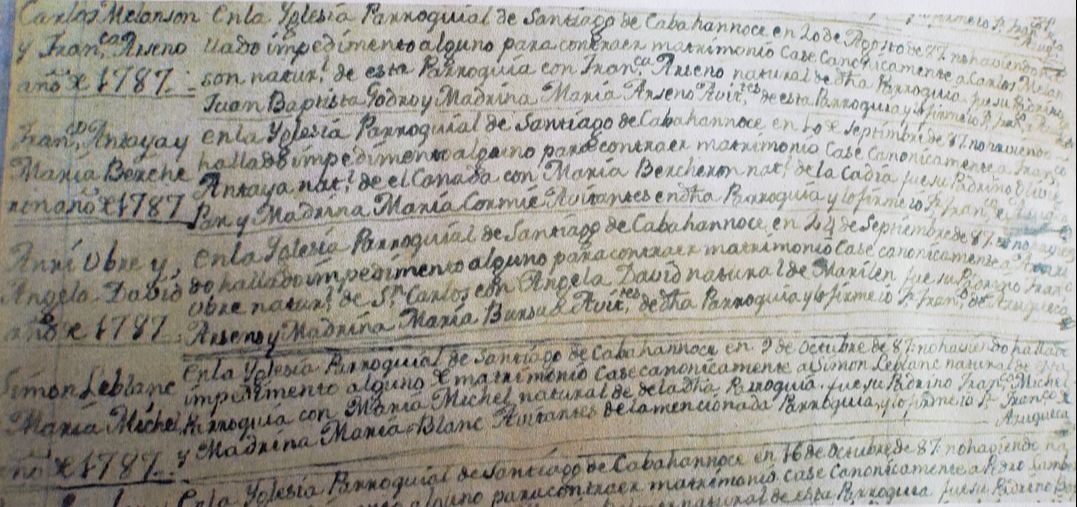 Carlos Melanson
y Fran.ca Arseno
año de 1787
En la Yglesia Parroquial de Santiago de Cabahannoce en 20 de Agosto de 87 no habiendo
llado impedimento alguno para contraer matrimonio Case Canonicamente a Carlos Melan
son natur.l de esta Parroquia con Fran.ca Arseno natural de dha Parroquia fue su Padrino
Juan Baptista Godro y Madrina Maria Arseno Avit.tes de esta Parroquia y lo firmé
Fran.co Antayay
Maria Berche
ron año de 1787
en la Yglesia Parroquial de Santiago de Cabahannoce en Septiembre de 87 no haviendo
hallado impedimento alguno para contraer matrimonio Case Canonicamente a Franco
Antaya nat.l de el Canada con Maria Bercheron nat.l de la Cadia fue su Padrino
y Madrina Maria Comié Avitantes en dha Parroquia y lo firmé
Anri Obre y
Angela David
año de 1787
en la Yglesia Parroquial de Santiago de Cabahannoce en 24 de Septiembre de 87
do hallado impedimento alguno para contraer matrimonio Case canonicamente a Anri
Obre natur.l de S.n Carlos con Angela David natural de Marilen fue su Padrino
Arseno y Madrina Maria Avit.es de dha Parroquia y lo firmé
Simon Leblanc
Maria Michel
año de 1787
en la Yglesia Parroquial de Santiago de Cabahannoce en 9 de Octubre de 87 no haviendo hallado
impedimento alguno de matrimonio Case canonicamente a Simon Leblanc natural de
Parroquia con Maria Michel natural de de la dha Parroquia fue su Padrino Fran.co Michel
y Madrina Maria Blanc Avitantes de la mencionada Parroquia y lo firmé
en la Yglesia Parroquial de Santiago de Cabahannoce en 16 de Octubre de 87 no haviendo
alguno para contraer matrimonio Case Canonicamente a
natural de esta Parroquia fue su Padrino